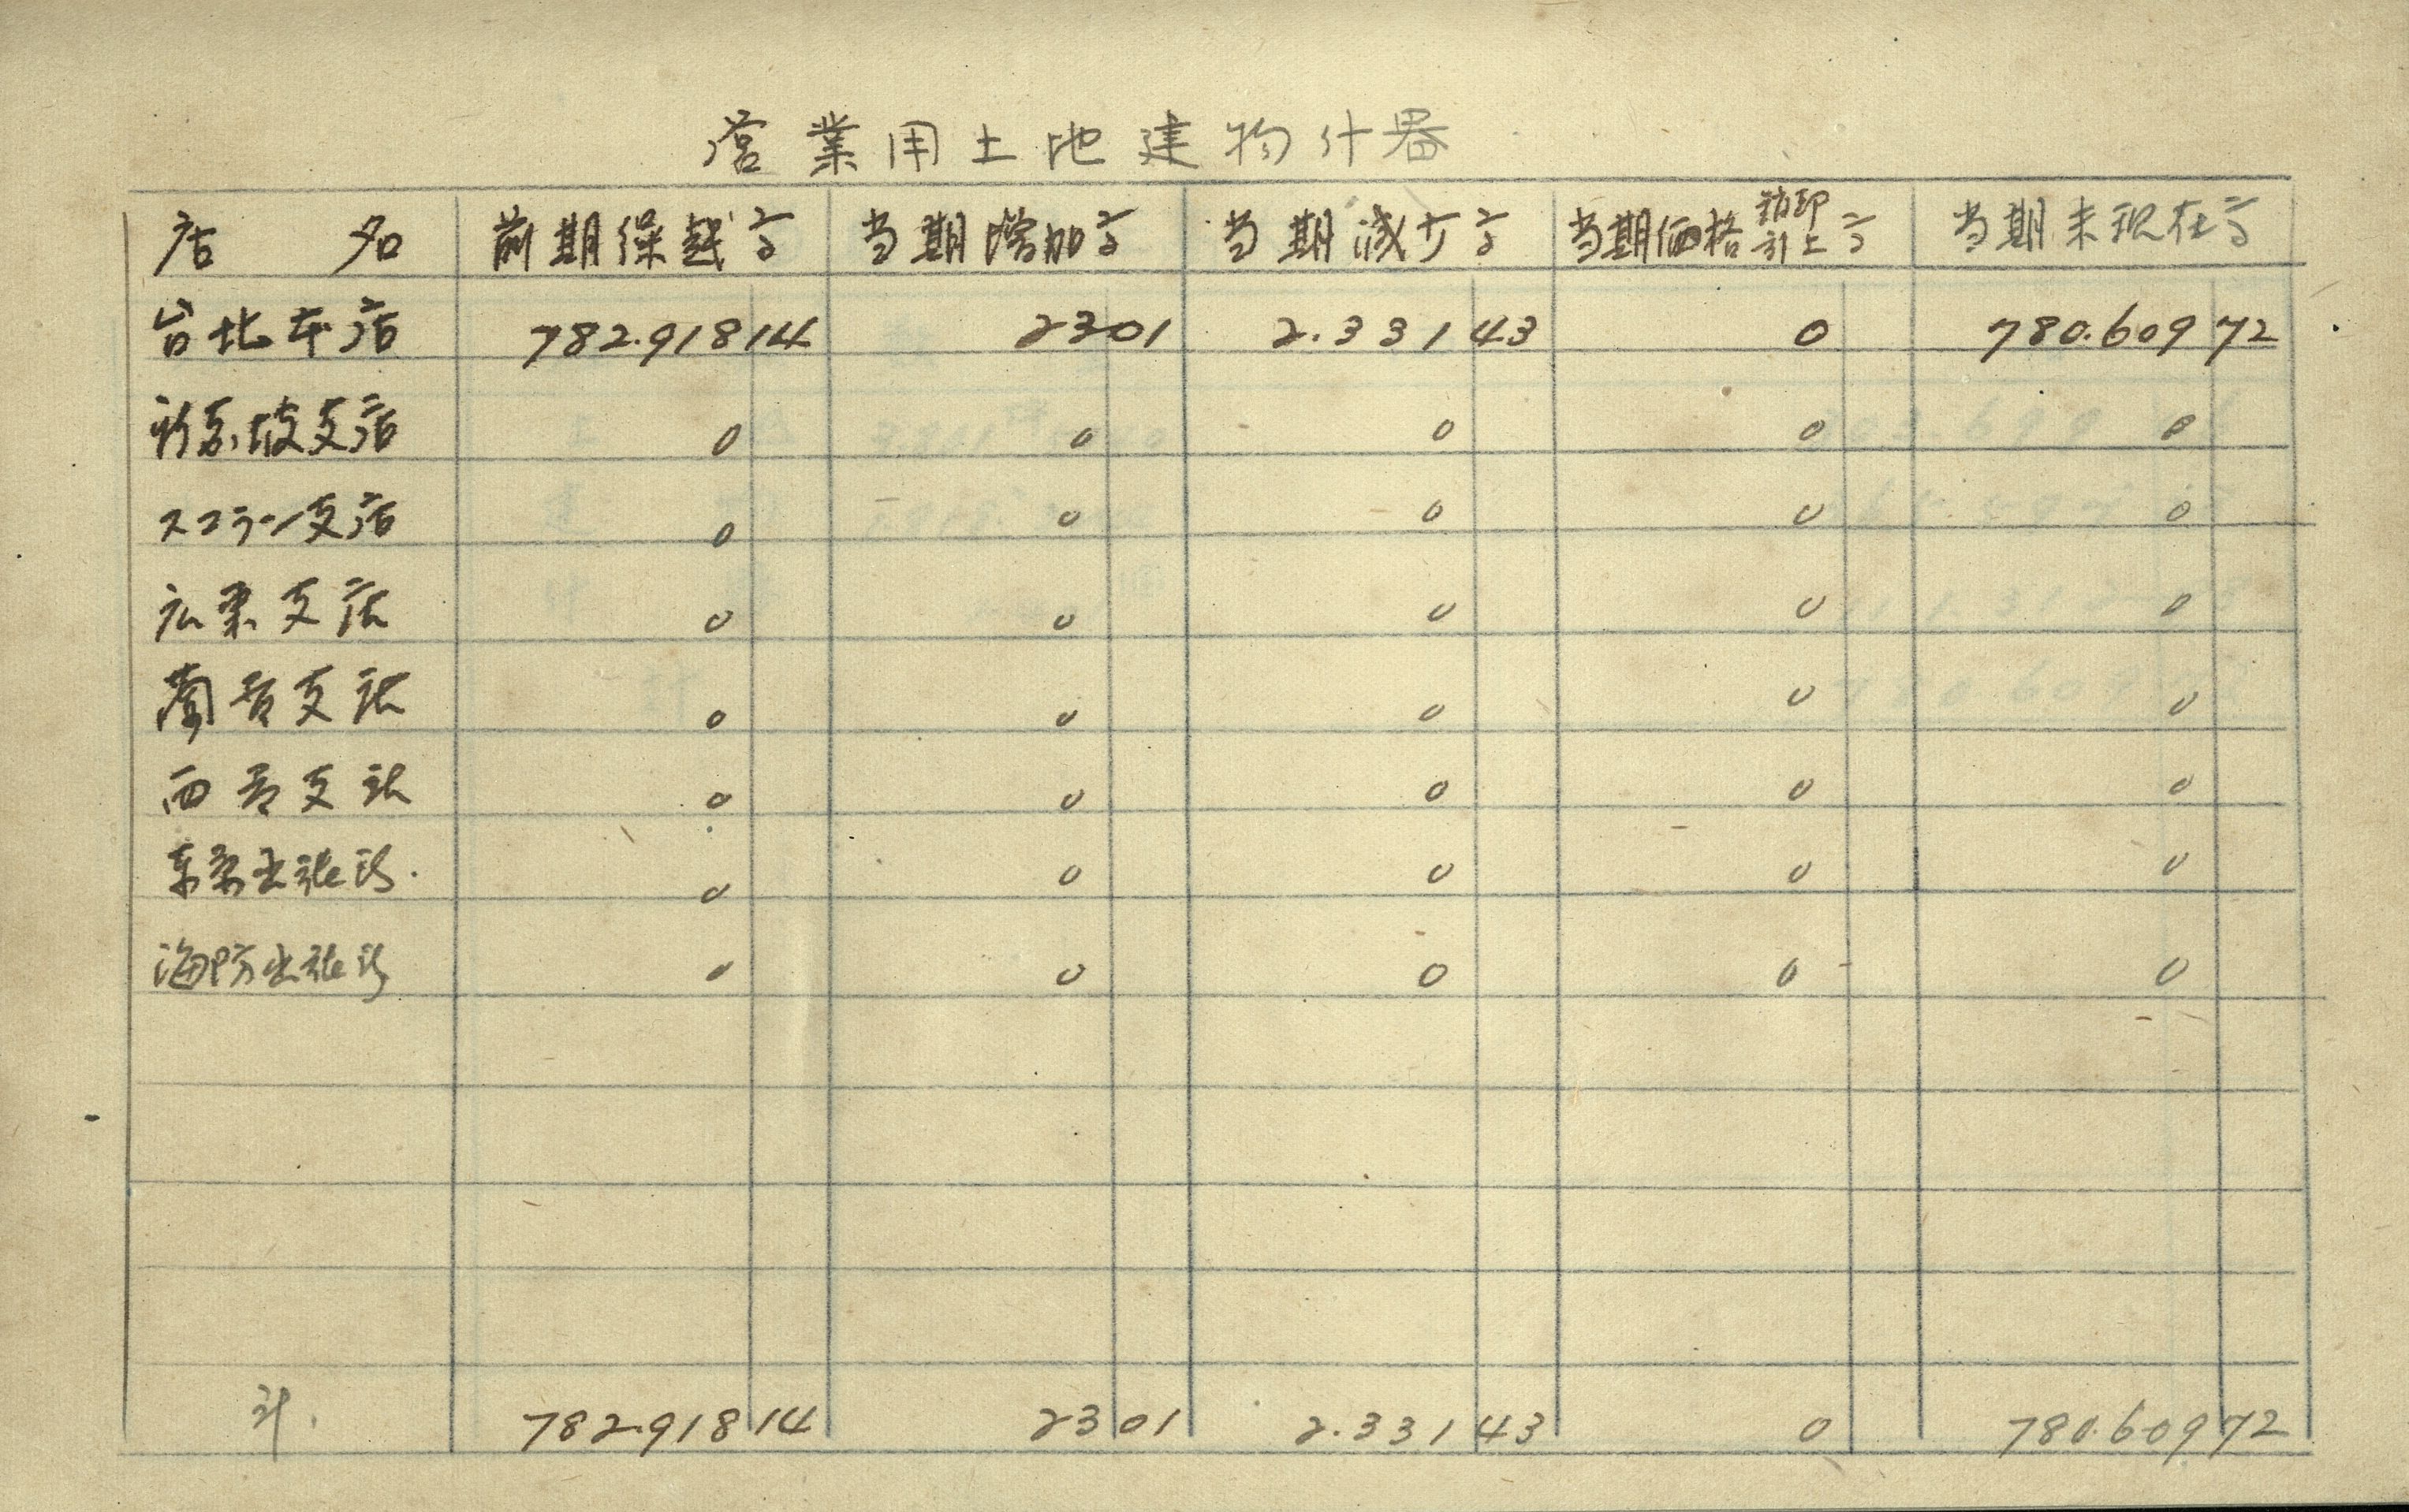 営業用土地建物什器
店名 前期繰越高 当期増加高 当期減少高 当期価格銷却計上高 当期末現在高
台北本店 782.918 14 23 01 2.331 43 0 780.609 72
新嘉坡支店 0 0 0 0 0
スマラン支店 0 0 0 0 0
広東支店 0 0 0 0 0
蘭貢支店 0 0 0 0 0
西貢支店 0 0 0 0 0
東京出張所 0 0 0 0 0
海防出張所 0 0 0 0 0
計 782.918 14 23 01 2.331 43 0 780.609 72